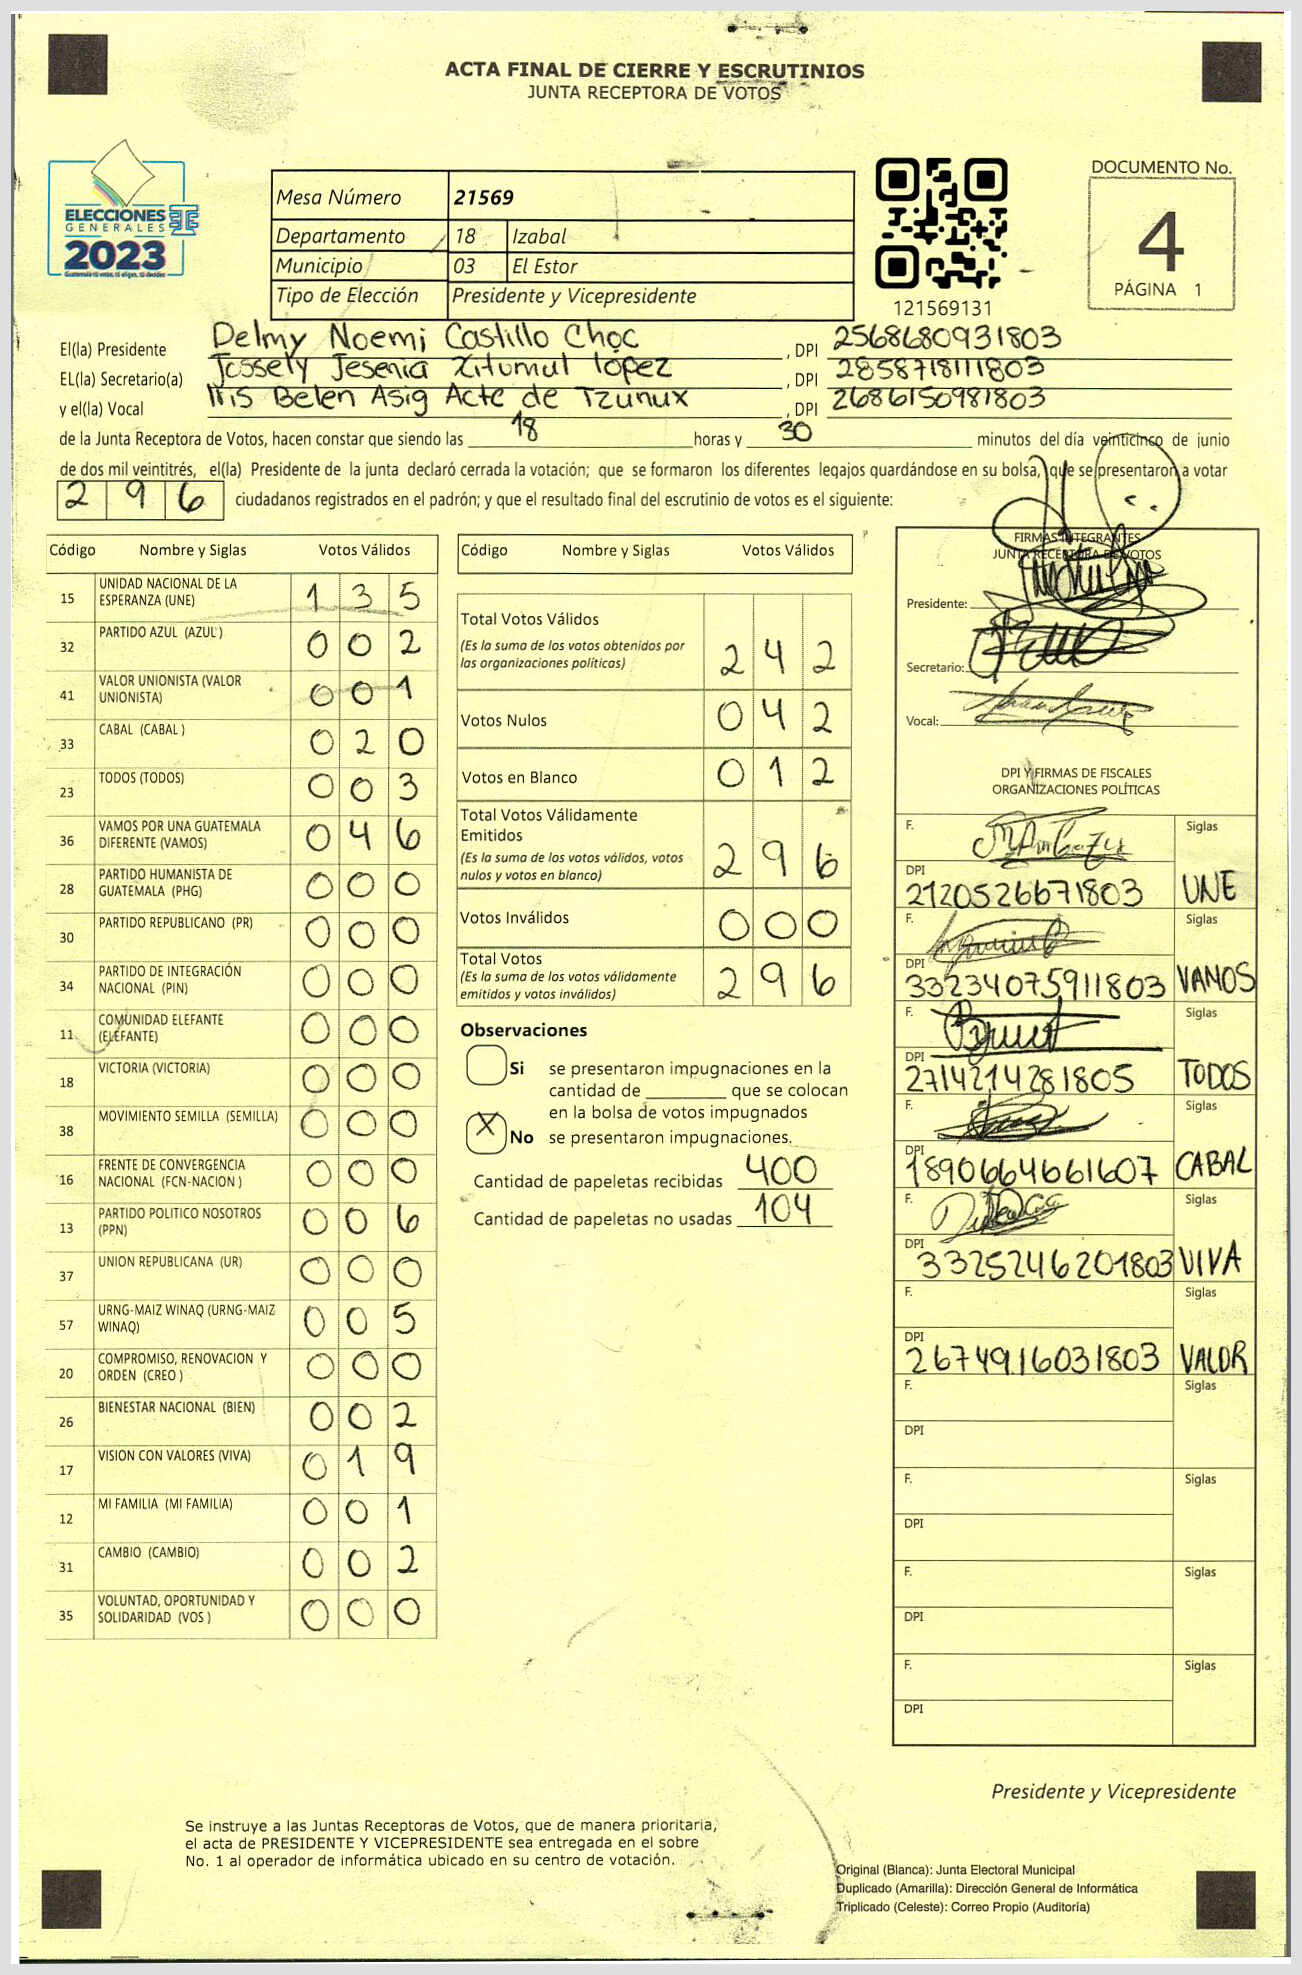 ACTA FINAL DE CIERRE Y ESCRUTINIOS
JUNTA RECEPTORA DE VOTOS
ELECCIONES
GENERALES
2023
Mesa Número 21569
Departamento 18 Izabal
Municipio 03 El Estor
Tipo de Elección Presidente y Vicepresidente
121569131
DOCUMENTO No.
4
PÁGINA 1
El(la) Presidente Delmy Noemi Castillo Choc, DPI 2568680931803
EL(la) Secretario(a) Jessely Jesenia Xitumul López, DPI 2858718111803
y el(la) Vocal Iris Belen Asig Acte de Tzunux, DPI 2686150981803
de la Junta Receptora de Votos, hacen constar que siendo las 18 horas y 30 minutos del día veinticinco de junio
de dos mil veintitrés, el(la) Presidente de la junta declaró cerrada la votación; que se formaron los diferentes legajos guardándose en su bolsa, que se presentaron a votar
296 ciudadanos registrados en el padrón; y que el resultado final del escrutinio de votos es el siguiente:
Código Nombre y Siglas Votos Válidos
15 UNIDAD NACIONAL DE LA ESPERANZA (UNE) 135
32 PARTIDO AZUL (AZUL) 002
41 VALOR UNIONISTA (VALOR UNIONISTA) 001
33 CABAL (CABAL ) 020
23 TODOS (TODOS) 003
36 VAMOS POR UNA GUATEMALA DIFERENTE (VAMOS) 046
28 PARTIDO HUMANISTA DE GUATEMALA (PHG) 000
30 PARTIDO REPUBLICANO (PR) 000
34 PARTIDO DE INTEGRACIÓN NACIONAL (PIN) 000
11 COMUNIDAD ELEFANTE (ELEFANTE) 000
18 VICTORIA (VICTORIA) 000
38 MOVIMIENTO SEMILLA (SEMILLA) 000
16 FRENTE DE CONVERGENCIA NACIONAL (FCN-NACION ) 000
13 PARTIDO POLITICO NOSOTROS (PPN) 006
37 UNION REPUBLICANA (UR) 000
57 URNG-MAIZ WINAQ (URNG-MAIZ WINAQ) 005
20 COMPROMISO, RENOVACION Y ORDEN (CREO ) 000
26 BIENESTAR NACIONAL (BIEN) 002
17 VISION CON VALORES (VIVA) 019
12 MI FAMILIA (MI FAMILIA) 001
31 CAMBIO (CAMBIO) 002
35 VOLUNTAD, OPORTUNIDAD Y SOLIDARIDAD (VOS ) 000
Código Nombre y Siglas Votos Válidos
Total Votos Válidos 242
(Es la suma de los votos obtenidos por
las organizaciones políticas)
Votos Nulos 042
Votos en Blanco 012
Total Votos Válidamente
Emitidos 296
(Es la suma de los votos válidos, votos
nulos y votos en blanco)
Votos Inválidos 000
Total Votos 296
(Es la suma de los votos válidamente
emitidos y votos inválidos)
Observaciones
Si se presentaron impugnaciones en la
cantidad de ________ que se colocan
en la bolsa de votos impugnados
X No se presentaron impugnaciones.
Cantidad de papeletas recibidas 400
Cantidad de papeletas no usadas 104
FIRMAS INTEGRANTES
JUNTA RECEPTORA DE VOTOS
Presidente:
Secretario:
Vocal:
DPI Y FIRMAS DE FISCALES
ORGANIZACIONES POLÍTICAS
F. Siglas
DPI 2120526671803 UNE
F. Siglas
DPI 33234075911803 VAMOS
F. Siglas
DPI 2714214281805 TODOS
F. Siglas
DPI 1890664661607 CABAL
F. Siglas
DPI 3325246201803 VIVA
F. Siglas
DPI 2674916031803 VALOR
F. Siglas
DPI
F. Siglas
DPI
F. Siglas
DPI
F. Siglas
DPI
Presidente y Vicepresidente
Se instruye a las Juntas Receptoras de Votos, que de manera prioritaria,
el acta de PRESIDENTE Y VICEPRESIDENTE sea entregada en el sobre
No. 1 al operador de informática ubicado en su centro de votación.
Original (Blanca): Junta Electoral Municipal
Duplicado (Amarilla): Dirección General de Informática
Triplicado (Celeste): Correo Propio (Auditoría)